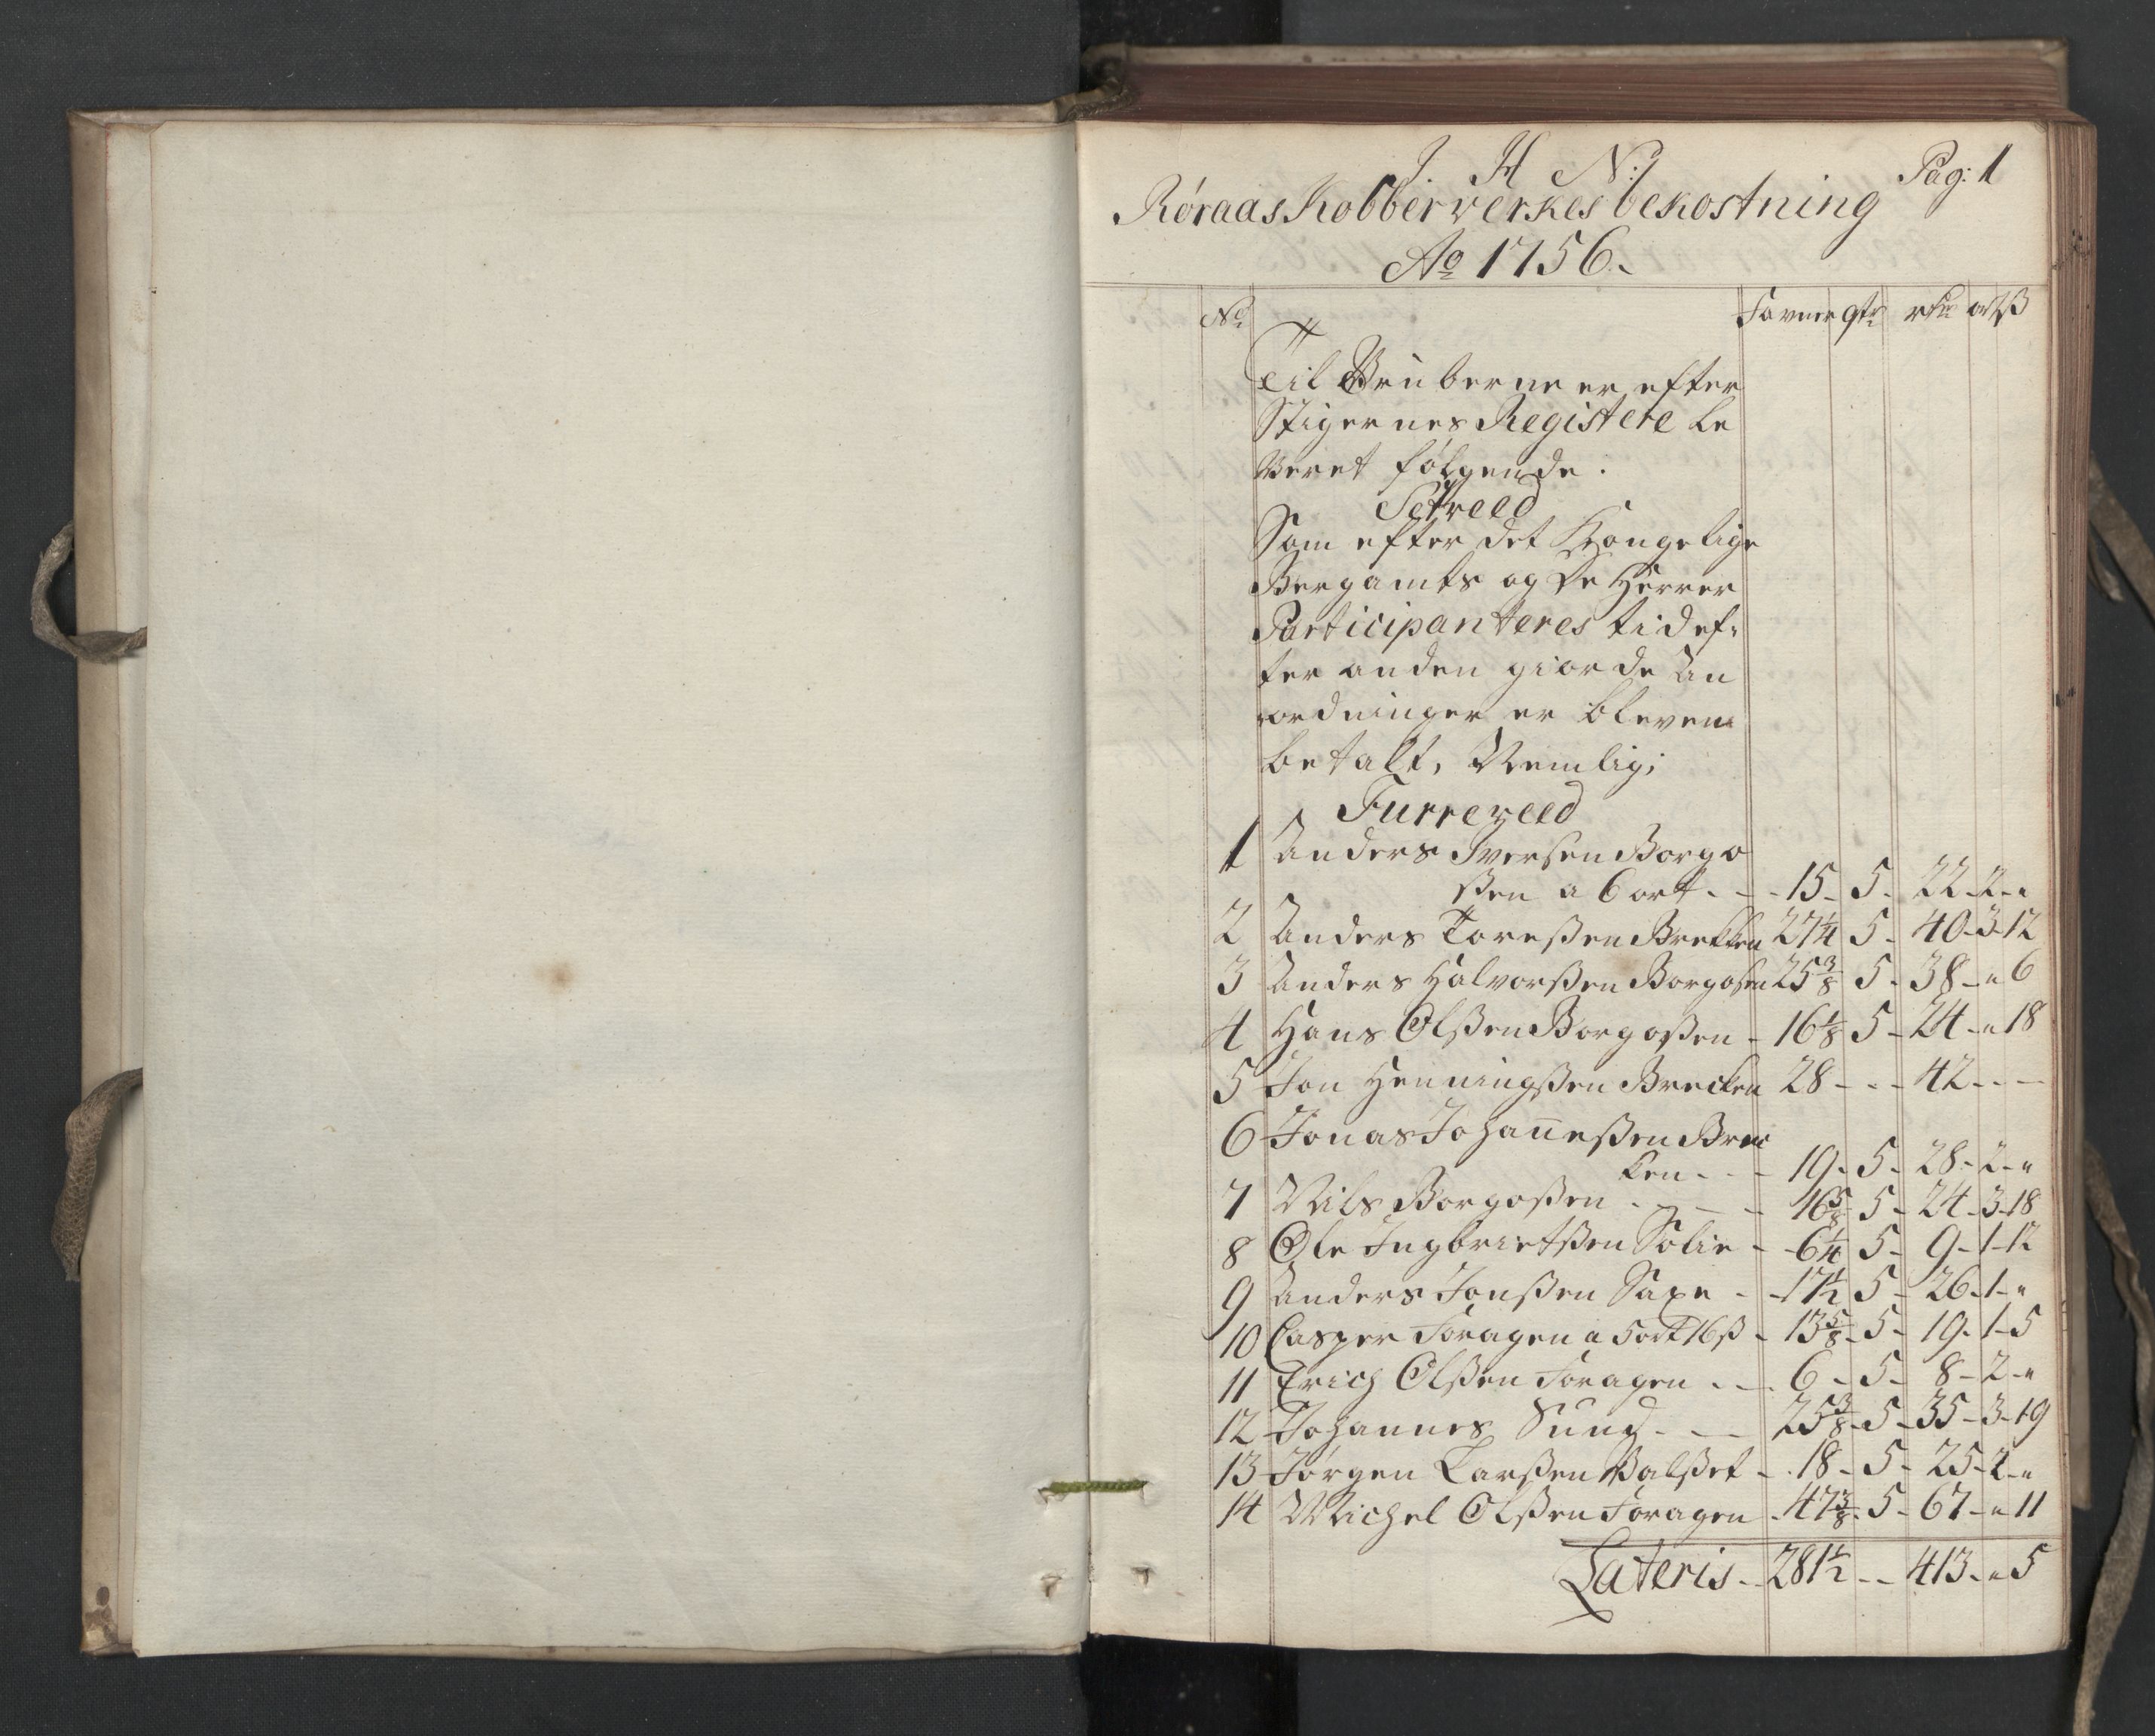 J. H N:
Pag: 1
Röraas Kobberverkes bekostning
Ao 1756.
No Favner qtr rdr ort ß
Til Gruberne er efter
Stigernes Registere le
veret følgende.
Setveed
Som efter det Kongelige
Bergamts og De Herrer
Participanteres tid ef:
ter anden giorde An
ordninger er bleven
betalt, Nemlig;
Furreveed
1 Anders Iversen Borgo
ßen a 6 ort - - 15 - 5 - 22 - 2 - "
2 Anders Toreßen Brekken 27 1/4 5 - 40 - 3 - 12
3 Anders Halvorßen Borgosen 25 3/8 5 - 38 - " 6
4 Hans Olßen Borgoßen - 16 1/8 5 - 24 - " 18
5 Jon Henningßen Brecken 28 - - - 42 - - -
6 Jonas Johanneßen Brec
ken - - - 19 - 5 - 28 - 2 - "
7 Nils Borgoßen - - - 16 5/8 - 5 - 24 - 3 - 18
8 Ole Ingbrietßen Solie - 6 1/4 5 - 9 - 1 - 12
9 Anders Jonßen Saxe - 17 1/2 5 - 26 - 1 - "
10 Casper Foragen a 5 ort 16 ß - 13 5/8 - 5 - 19 - 1 - 5
11 Erich Olßen Foragen - - 6 - 5 - 8 - 2 - "
12 Johannes Sund - - 25 3/8 - 5 - 35 - 3 - 19
13 Jørgen Larßen Galßet - 18 - 5 - 25 - 2 - "
14 Michel Olßen Foragen - 47 3/8 - 5 - 67 - " 11
Lateris - 281 1/2 - - 413 - " 5